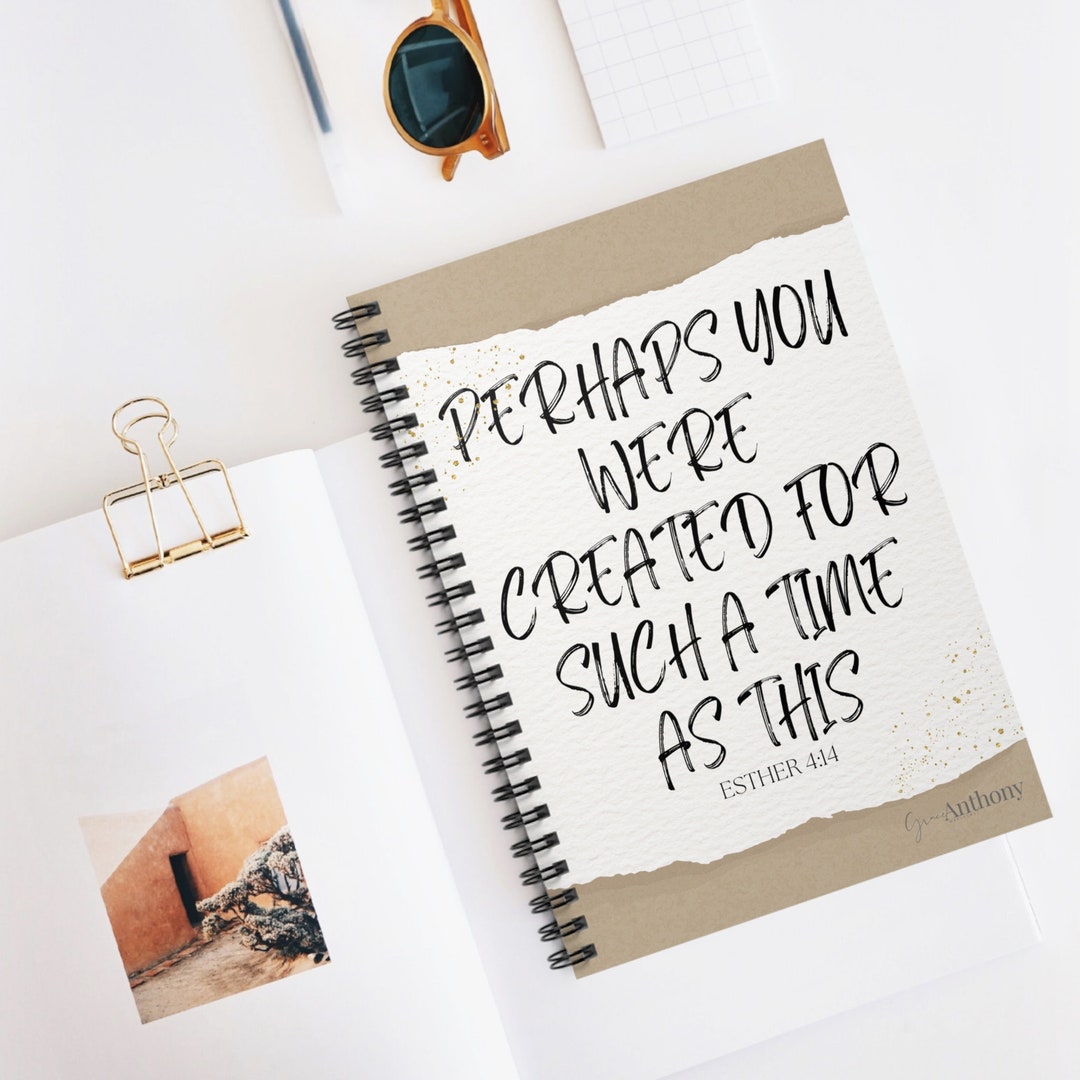 PERHAPS YOU
WERE
CREATED FOR
SUCH A TIME
AS THIS
ESTHER 4:14
Grace Anthony